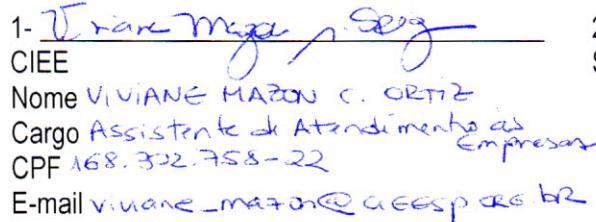 1-
CIEE
Nome VIVIANE MAZON C. ORTIZ
Cargo Assistente de Atendimento às Empresas
CPF 168.302.758-22
E-mail viviane_mazon@cieesp.org.br
2